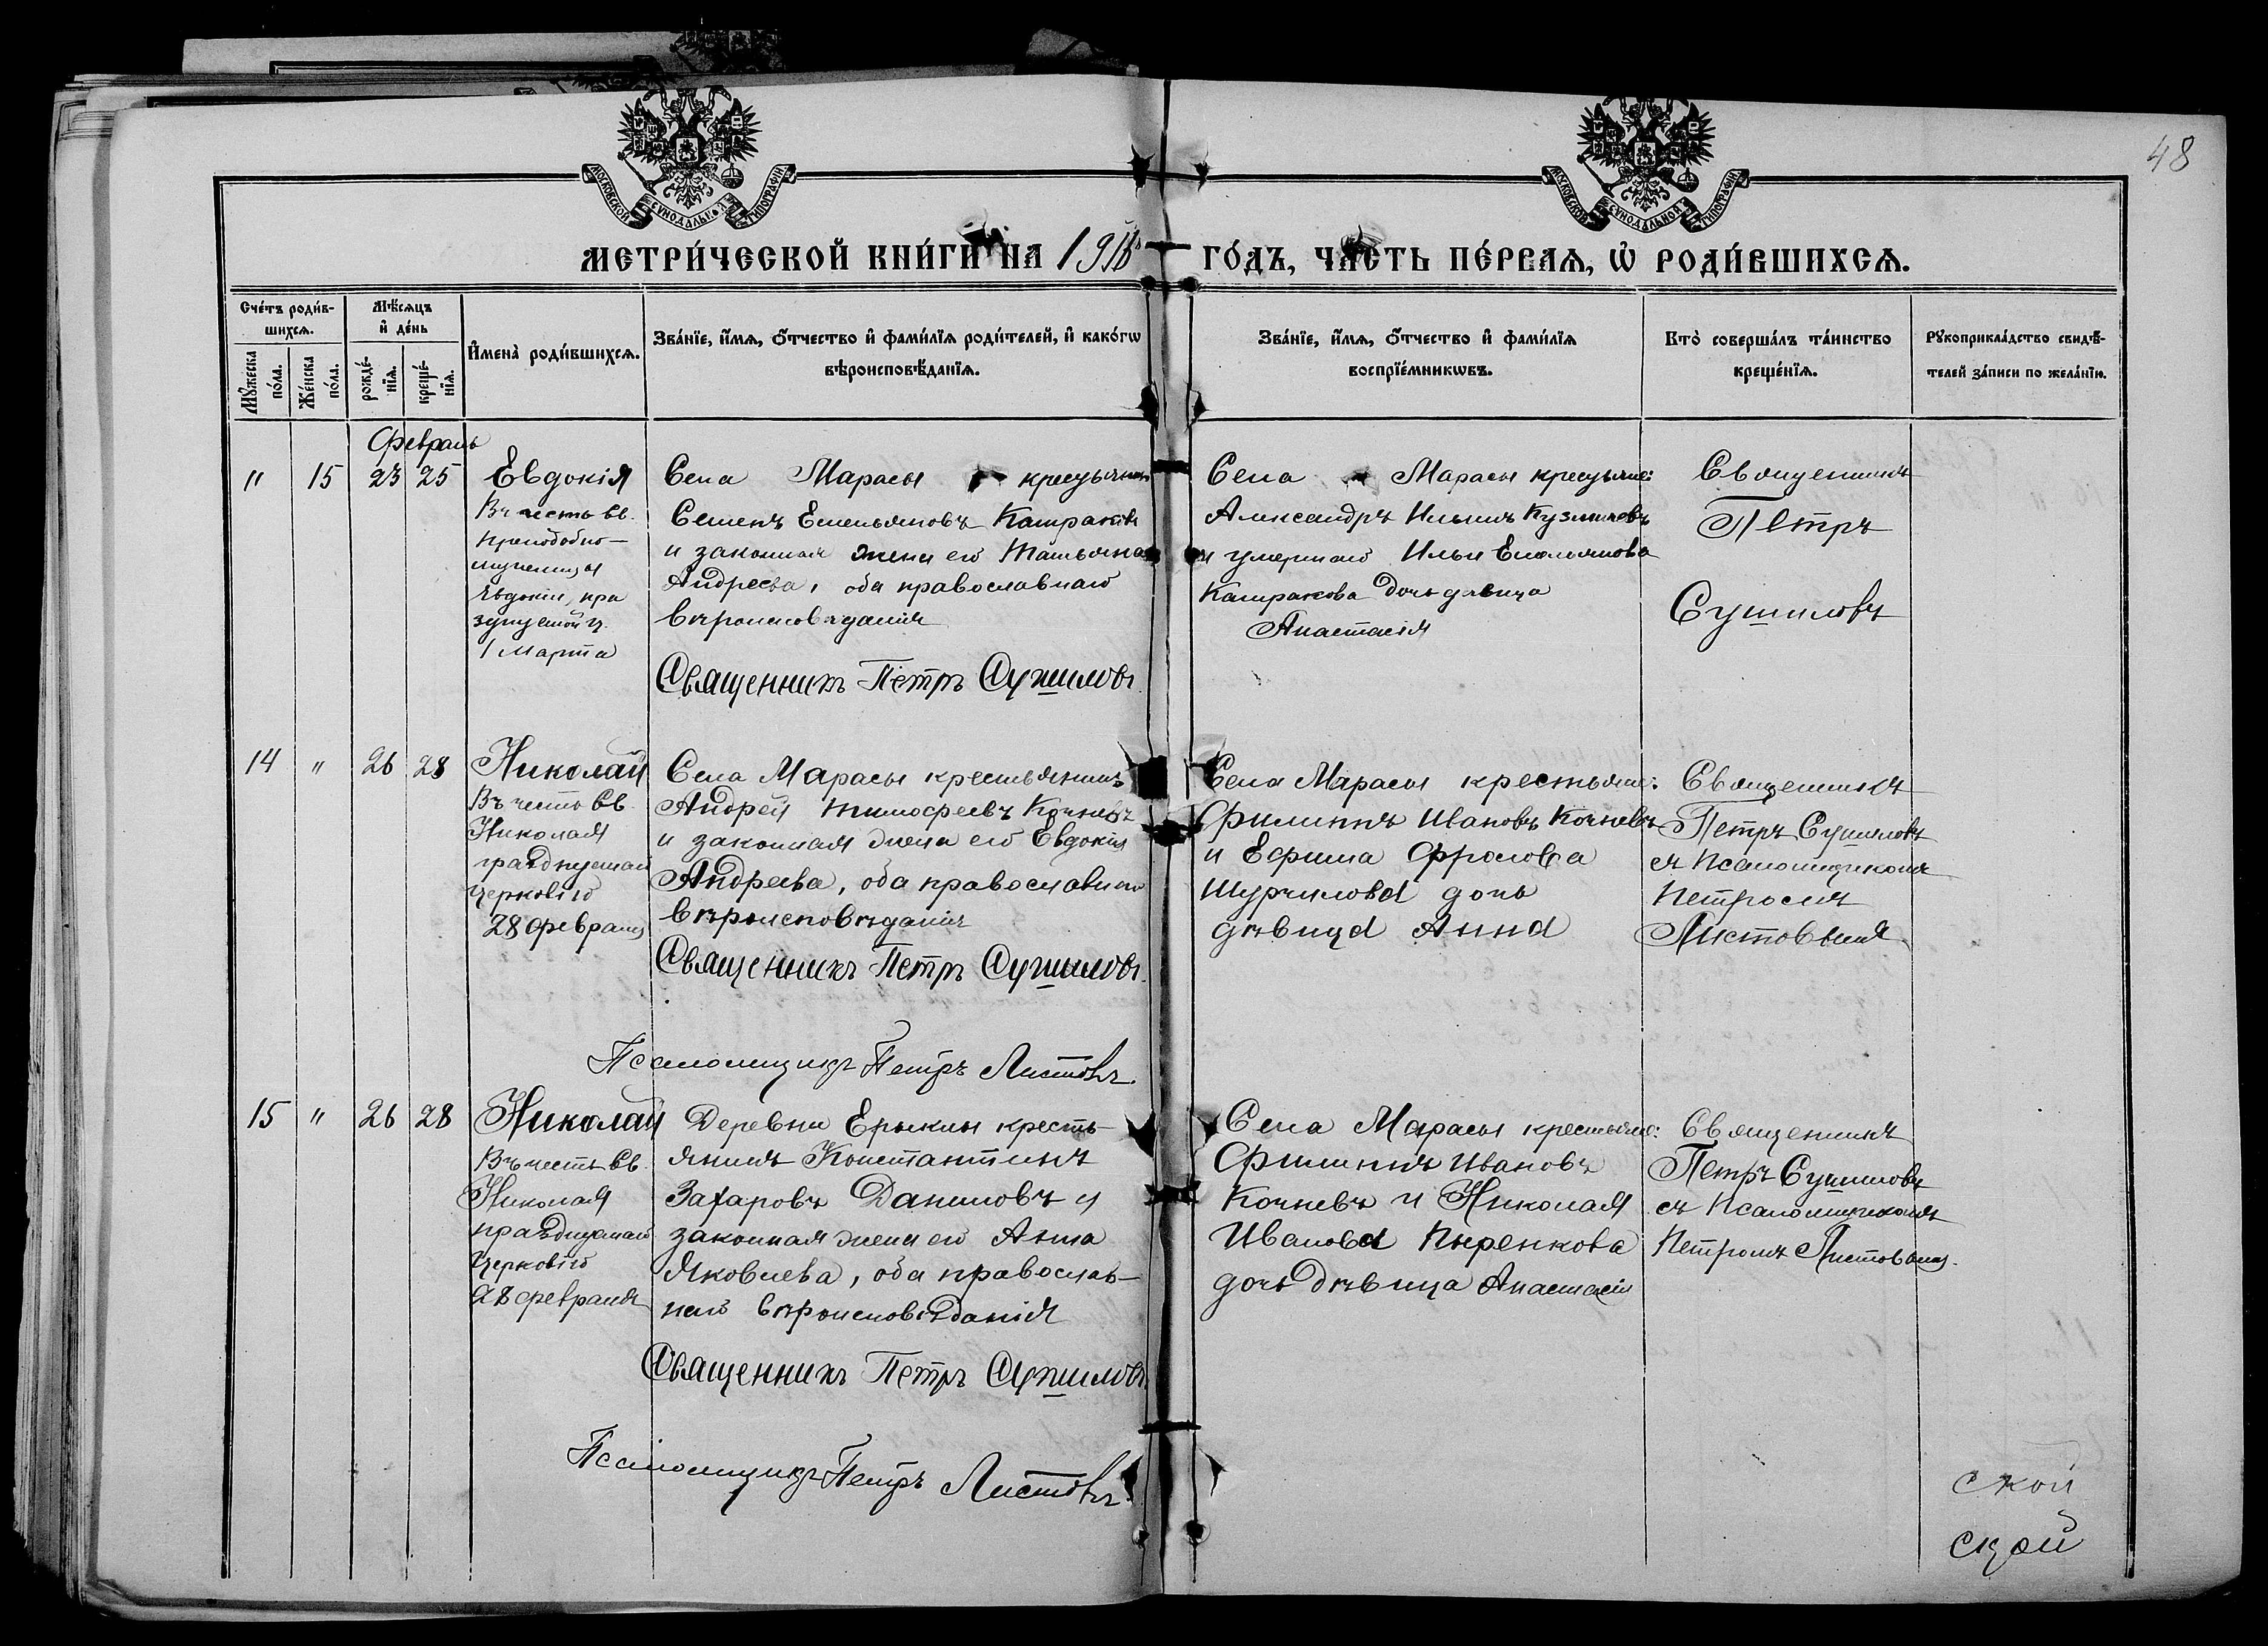 48
МОСКОВСКОЙ СѴНОДАЛЬНОЙ ТИПОГРАФІИ
МОСКОВСКОЙ СѴНОДАЛЬНОЙ ТИПОГРАФІИ
МЕТРИ́ЧЕСКОЙ КНИ́ГИ НА 191 ГО́ДЪ, ЧА́СТЬ ПЕ́РВАЯ, Ѡ РОДИ́ВШИХСЯ.
Сче́тъ роди́в-
шихся.
Мꙋжеска по́ла.
Же́нска по́ла.
Мѣ́сяцъ
и де́нь
рожде́-нїя.
креще́-нїя.
Имена̀ роди́вшихся.
Зва́нїе, и́мя, о́тчество и фами́лїя роди́телей, и како́гѡ
вѣроисповѣ́данїя.
Зва́нїе, и́мя, о́тчество и фами́лїя
воспрїе́мникѡвъ.
Кто̀ соверша́лъ та́инство
креще́нїя.
Рꙋкоприкла́дство свидѣ́-
телей за́писи по жела́нїю.
Февраль
" 15 23 25
Евдокія
Въ честь св.
преподобно-
мученицы
Евдокіи, пра
зднуемой ц.
1 Марта
Села Марасы крестьянинъ
Семенъ Емельяновъ
и законная жена его Татьяна
Андреева, оба православнаго
вѣроисповѣданія
Священникъ Петръ Сушиловъ.
Села Марасы крестьяне:
Александръ Ильинъ Кузмичевъ
и умершаго Ильи Емельянова
дочь дѣвица
Анастасія
Священникъ
Петръ
Сушиловъ
14 " 26 28
Николай
Въ честь Св.
Николая
празднуемаго
Церковію
28 февраля
Села Марасы крестьянинъ
Андрей Тимофеевъ Кочневъ
и законная жена его Евдокія
Андреева, оба православнаго
вѣроисповѣданія
Священникъ Петръ Сушиловъ.
Псаломщикъ Петръ Листовъ.
Села Марасы крестьяне:
Филиппъ Ивановъ Кочневъ
и Ефима Фролова
Шурчилова дочь
дѣвица Анна
Священникъ
Петръ Сушиловъ
съ Псаломщикомъ
Петромъ
Листовымъ.
15 " 26 28
Николай
Въ честь Св.
Николая
празднуемаго
Церковію
28 февраля
Деревни Ерыклы кресть-
янинъ Константинъ
Захаровъ Даниловъ и
законная жена его Анна
Яковлева, оба православ-
наго вѣроисповѣданія
Священникъ Петръ Сушиловъ.
Псаломщикъ Петръ Листовъ.
Села Марасы крестьяне:
Филиппъ Ивановъ
Кочневъ и Николая
Иванова Пыренкова
дочь дѣвица Анастасія
Священникъ
Петръ Сушиловъ
съ Псаломщикомъ
Петромъ Листовымъ.
ской
ской